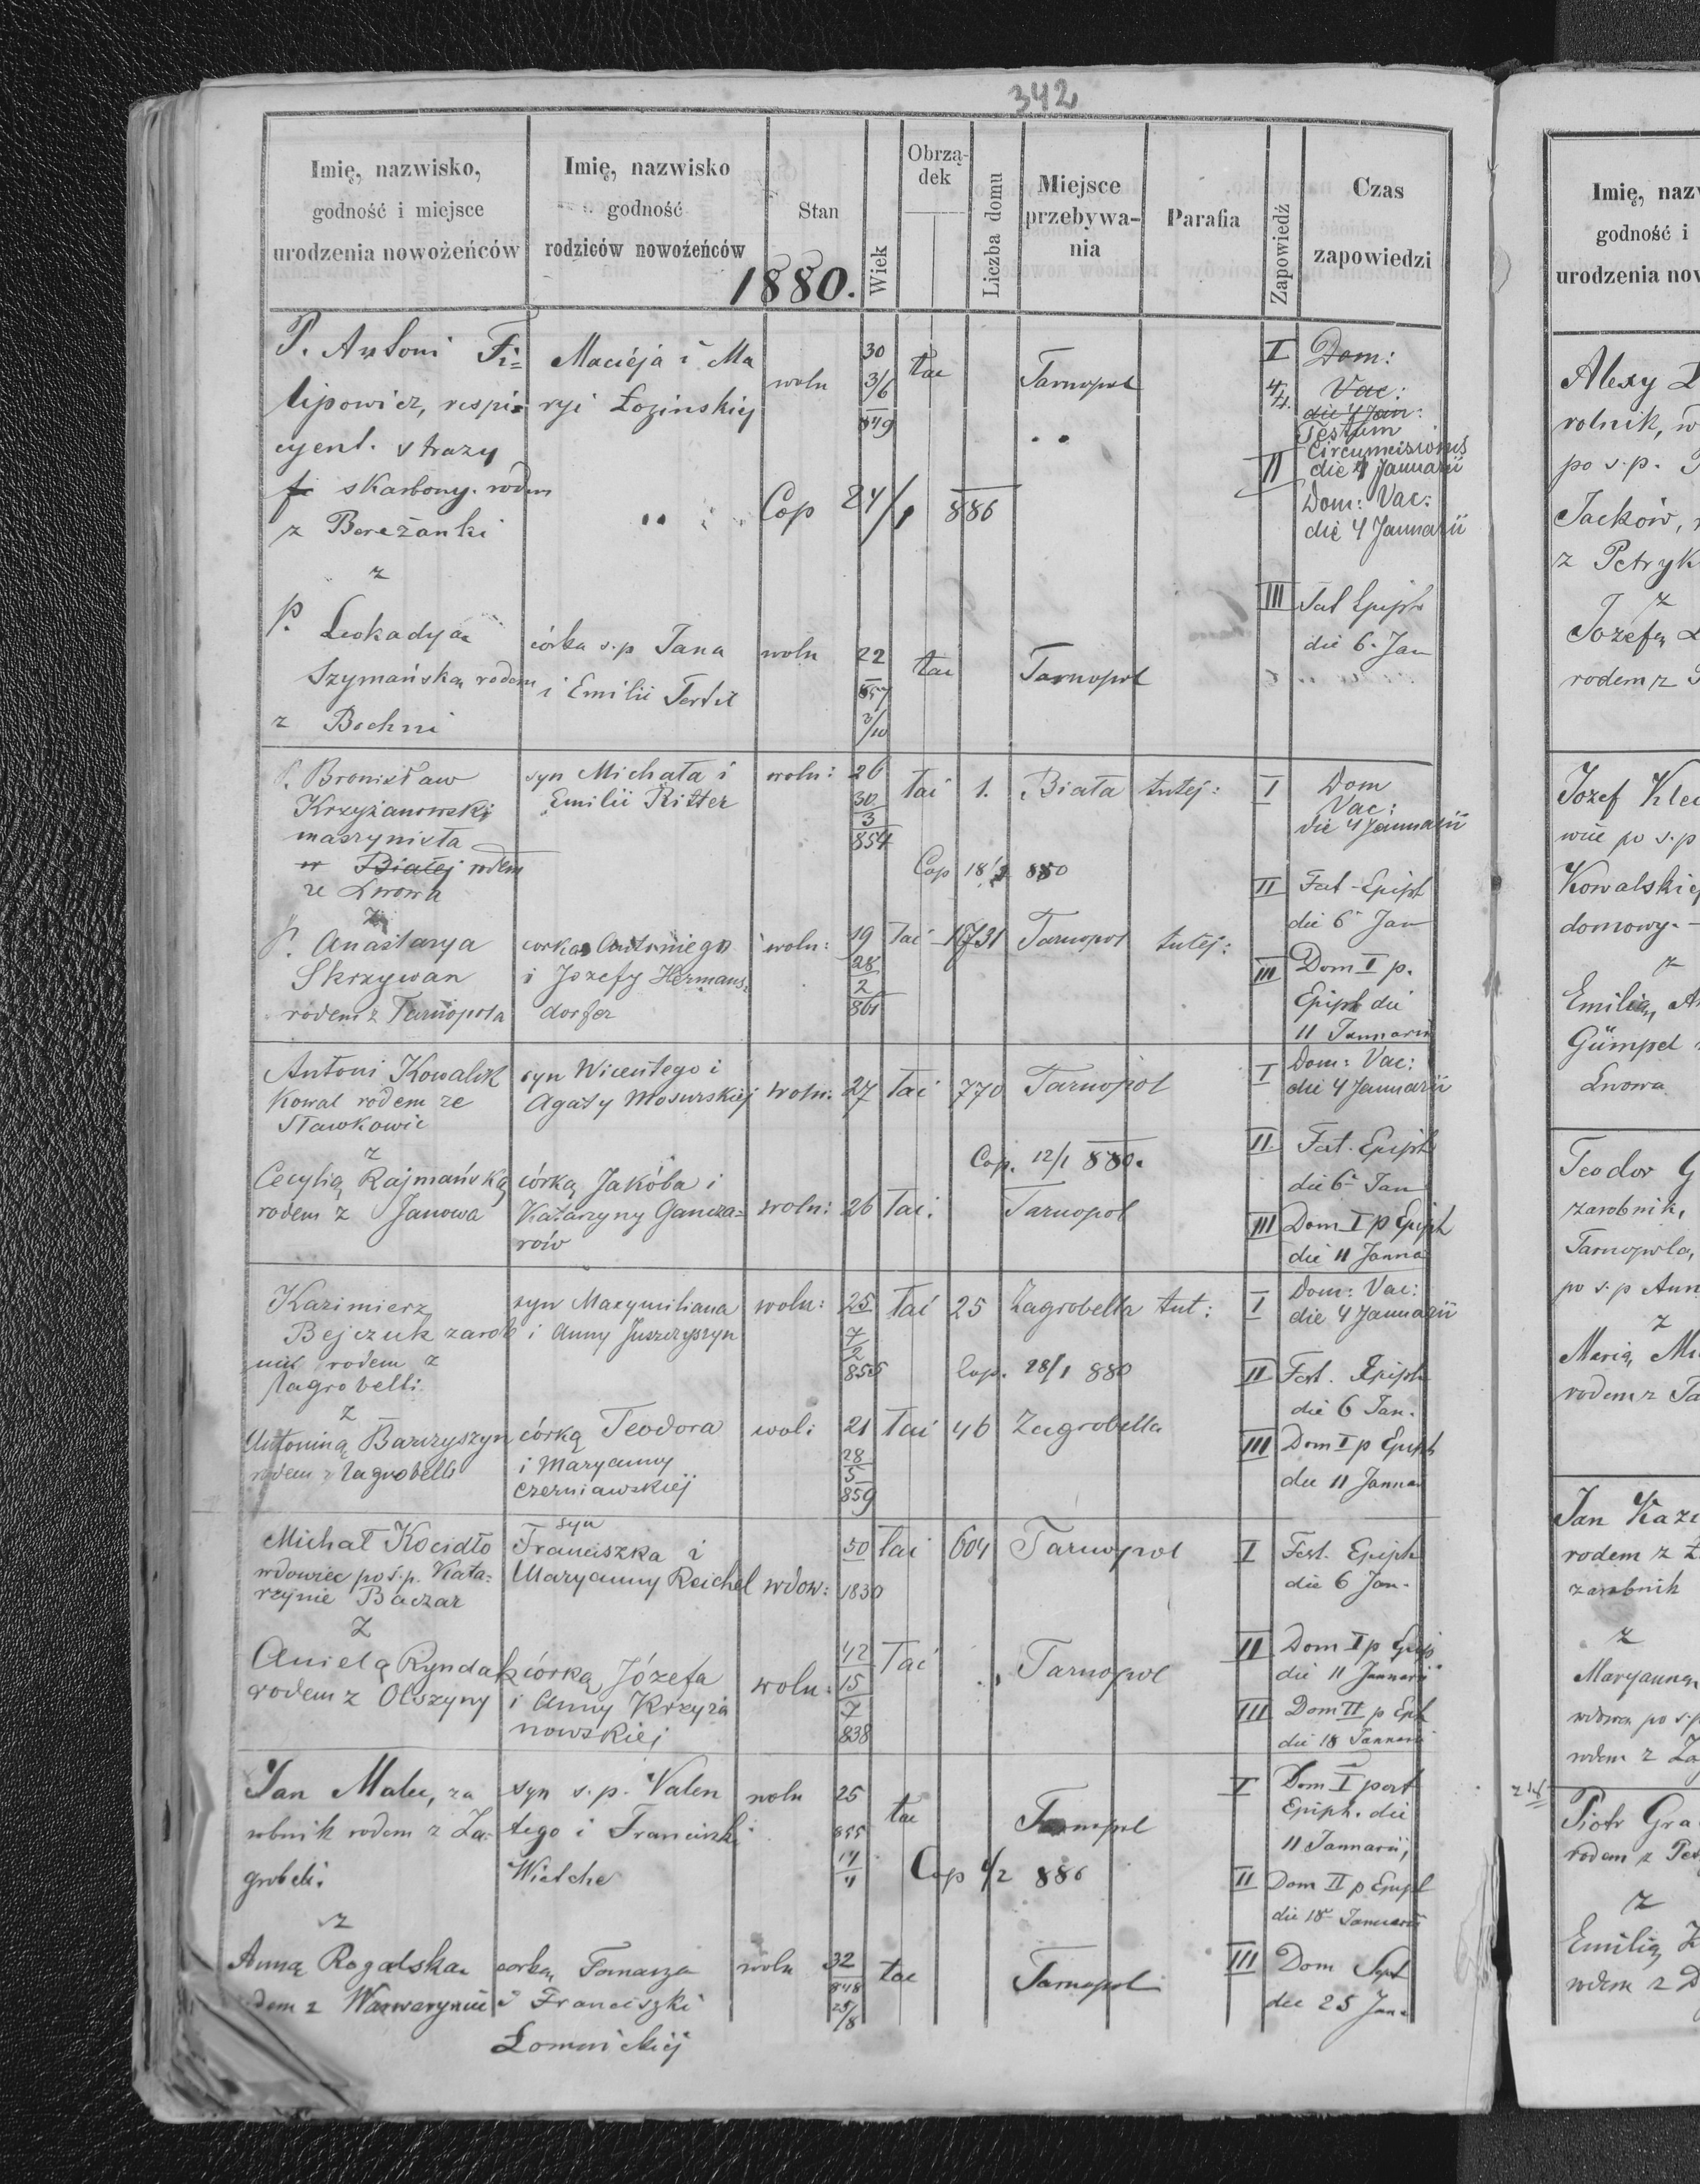 342
Imię, nazwisko,
godność i miejsce
urodzenia nowożeńców
Imię, nazwisko
godność
rodziców nowożeńców
Stan
1880.
Wiek
Obrzą-
dek
Liczba domu
Miejsce
przebywa-
nia
Parafia
Zapowiedź
Czas
zapowiedzi
P. Antoni Fi=
lipowicz, respi=
cyent. strazy
skarbowy. rodem
z Bereżanki
z
P. Leokadya
Szymańską rodem
z Bochni
Macieja i Ma
ryi Łozinskiej
córka s.p Jana
i Emilii Tertil
woln
30
3/6
849
tac
Tarnopol
Cop 24/1 880
woln
22
857
3/10
tac
Tarnopol
I Dom:
Vac:
die 4 Jan:
Festum
Circumcisionis
II
die 4 Januarii
Dom: Vac:
die 4 Januarii
III Fest Epiph
die 6. Jan
P. Bronisław
Krzyżanowski
maszynista
w Białej rodem
ze Lwowa
z
P. Anastazya
Skrzywan
rodem z Tarnopola
syn Michała i
Emilii Ritter
corka Antoniego
i Jozefy Hermans=
dorfer
woln:
26
30
3
854
łać
1.
Biała
tutej:
Cop 18/2 880
woln:
19
28
2
861
łać
1731
Tarnopol
tutej:
I Dom
Vac:
die 4 Januarii
II Fest Epiph
die 6 Jan
III Dom I p.
Epiph die
11 Januarii
Antoni Kowalik
Kowal rodem ze
Sławkowic
z
Cecylią Rajmańską
rodem z Janowa
syn Wicentego i
Agaty Mosurskiej
córką Jakóba i
Katarzyny Gancza=
rów
woln:
27
łać
770
Tarnopol
Cop. 12/1 880.
woln:
26
łać.
Tarnopol
I Dom: Vac:
die 4 Januarii
II Fest. Epiph
die 6 Jan
III Dom I p Epiph
die 11 Janna
Kazimierz
Bejczuk zarob
nik rodem z
Zagrobelli
z
Antoniną Barczyszyn
rodem z Zagrobelli
syn Maxymiliana
i Anny Juszczyszyn
córką Teodora
i Maryanny
Czerniawskiej
woln:
25
7
2
855
łać
25
Zagrobella
tut:
Cop. 28/1 880
wol:
21
28
5
859
łać
46
Zagrobella
I Dom: Vac:
die 4 Januarii
II Fest. Epiph
die 6 Jan.
III Dom I p Epiph
die 11 Janna
Michał Kocidło
wdowiec po s.p. Kata=
rzynie Baczar
Z
Anielą Ryndak
rodem z Olszyny
syn
Franciszka i
Maryanny Reichel
córką Józefa
i Anny Krzyża
nowskiej
wdow:
50
1830
łać
604
Tarnopol
woln:
42
15
7
838
łać
Tarnopol
I Fest. Epiph
die 6 Jan.
II Dom I p Epip
die 11 Januarii
III Dom II p Eph
die 18 Januarii
Jan Malec, za
robnik rodem z Za=
grobeli.
z
Anną Rogalska
rodem z Warwaryniec
syn s.p. Valen
tego i Franciszki
corka Tomasza
i Franciszki
Łomnickiej
woln
25
855
tac
Tarnopol
Cop 4/2 880
woln
32
848
25/8
tac
Tarnopol
I Dom I post
Epiph. die
11 Januarii,
II Dom II p Epiph
die 18 Januarii
III Dom Sept
die 25 Jan.
Imię, naz
godność i
urodzenia now
Alexy
rolnik, w
po s.p.
Jacków,
z Petryk
z
Jozefą
rodem z
Jozef Kle
wiec po s.p
Kowalskiej
domowy.
z
Emilią, A
Gümpel
Lwowa
Teodor G
zarobnik,
Tarnopola,
po s.p Ann
z
Marią, Mi
rodem z Ta
Jan Kazi
rodem z
zarobnik
z
Maryanną
wdowa po s.p
rodem z Za
Piotr Gra
rodem z
z
Emilią
rodem z D